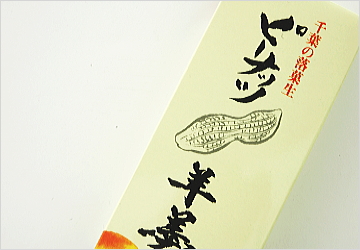 千葉の落葉生
ピーナッツ
羊羹